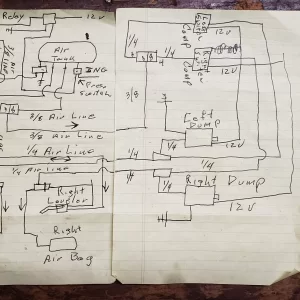 Relay
12V
Air
Tank
ING
Press
Switch
3/8 Air Line
3/8 Air Line
1/4 Air Line
1/4 Air Line
Right
Levelor
Right
Air Bag
1/4
Comp
Comp
1/4
3/8
12V
3/8
Left
Dump
1/4
12V
1/4
1/4
1/4
Right Dump
12V